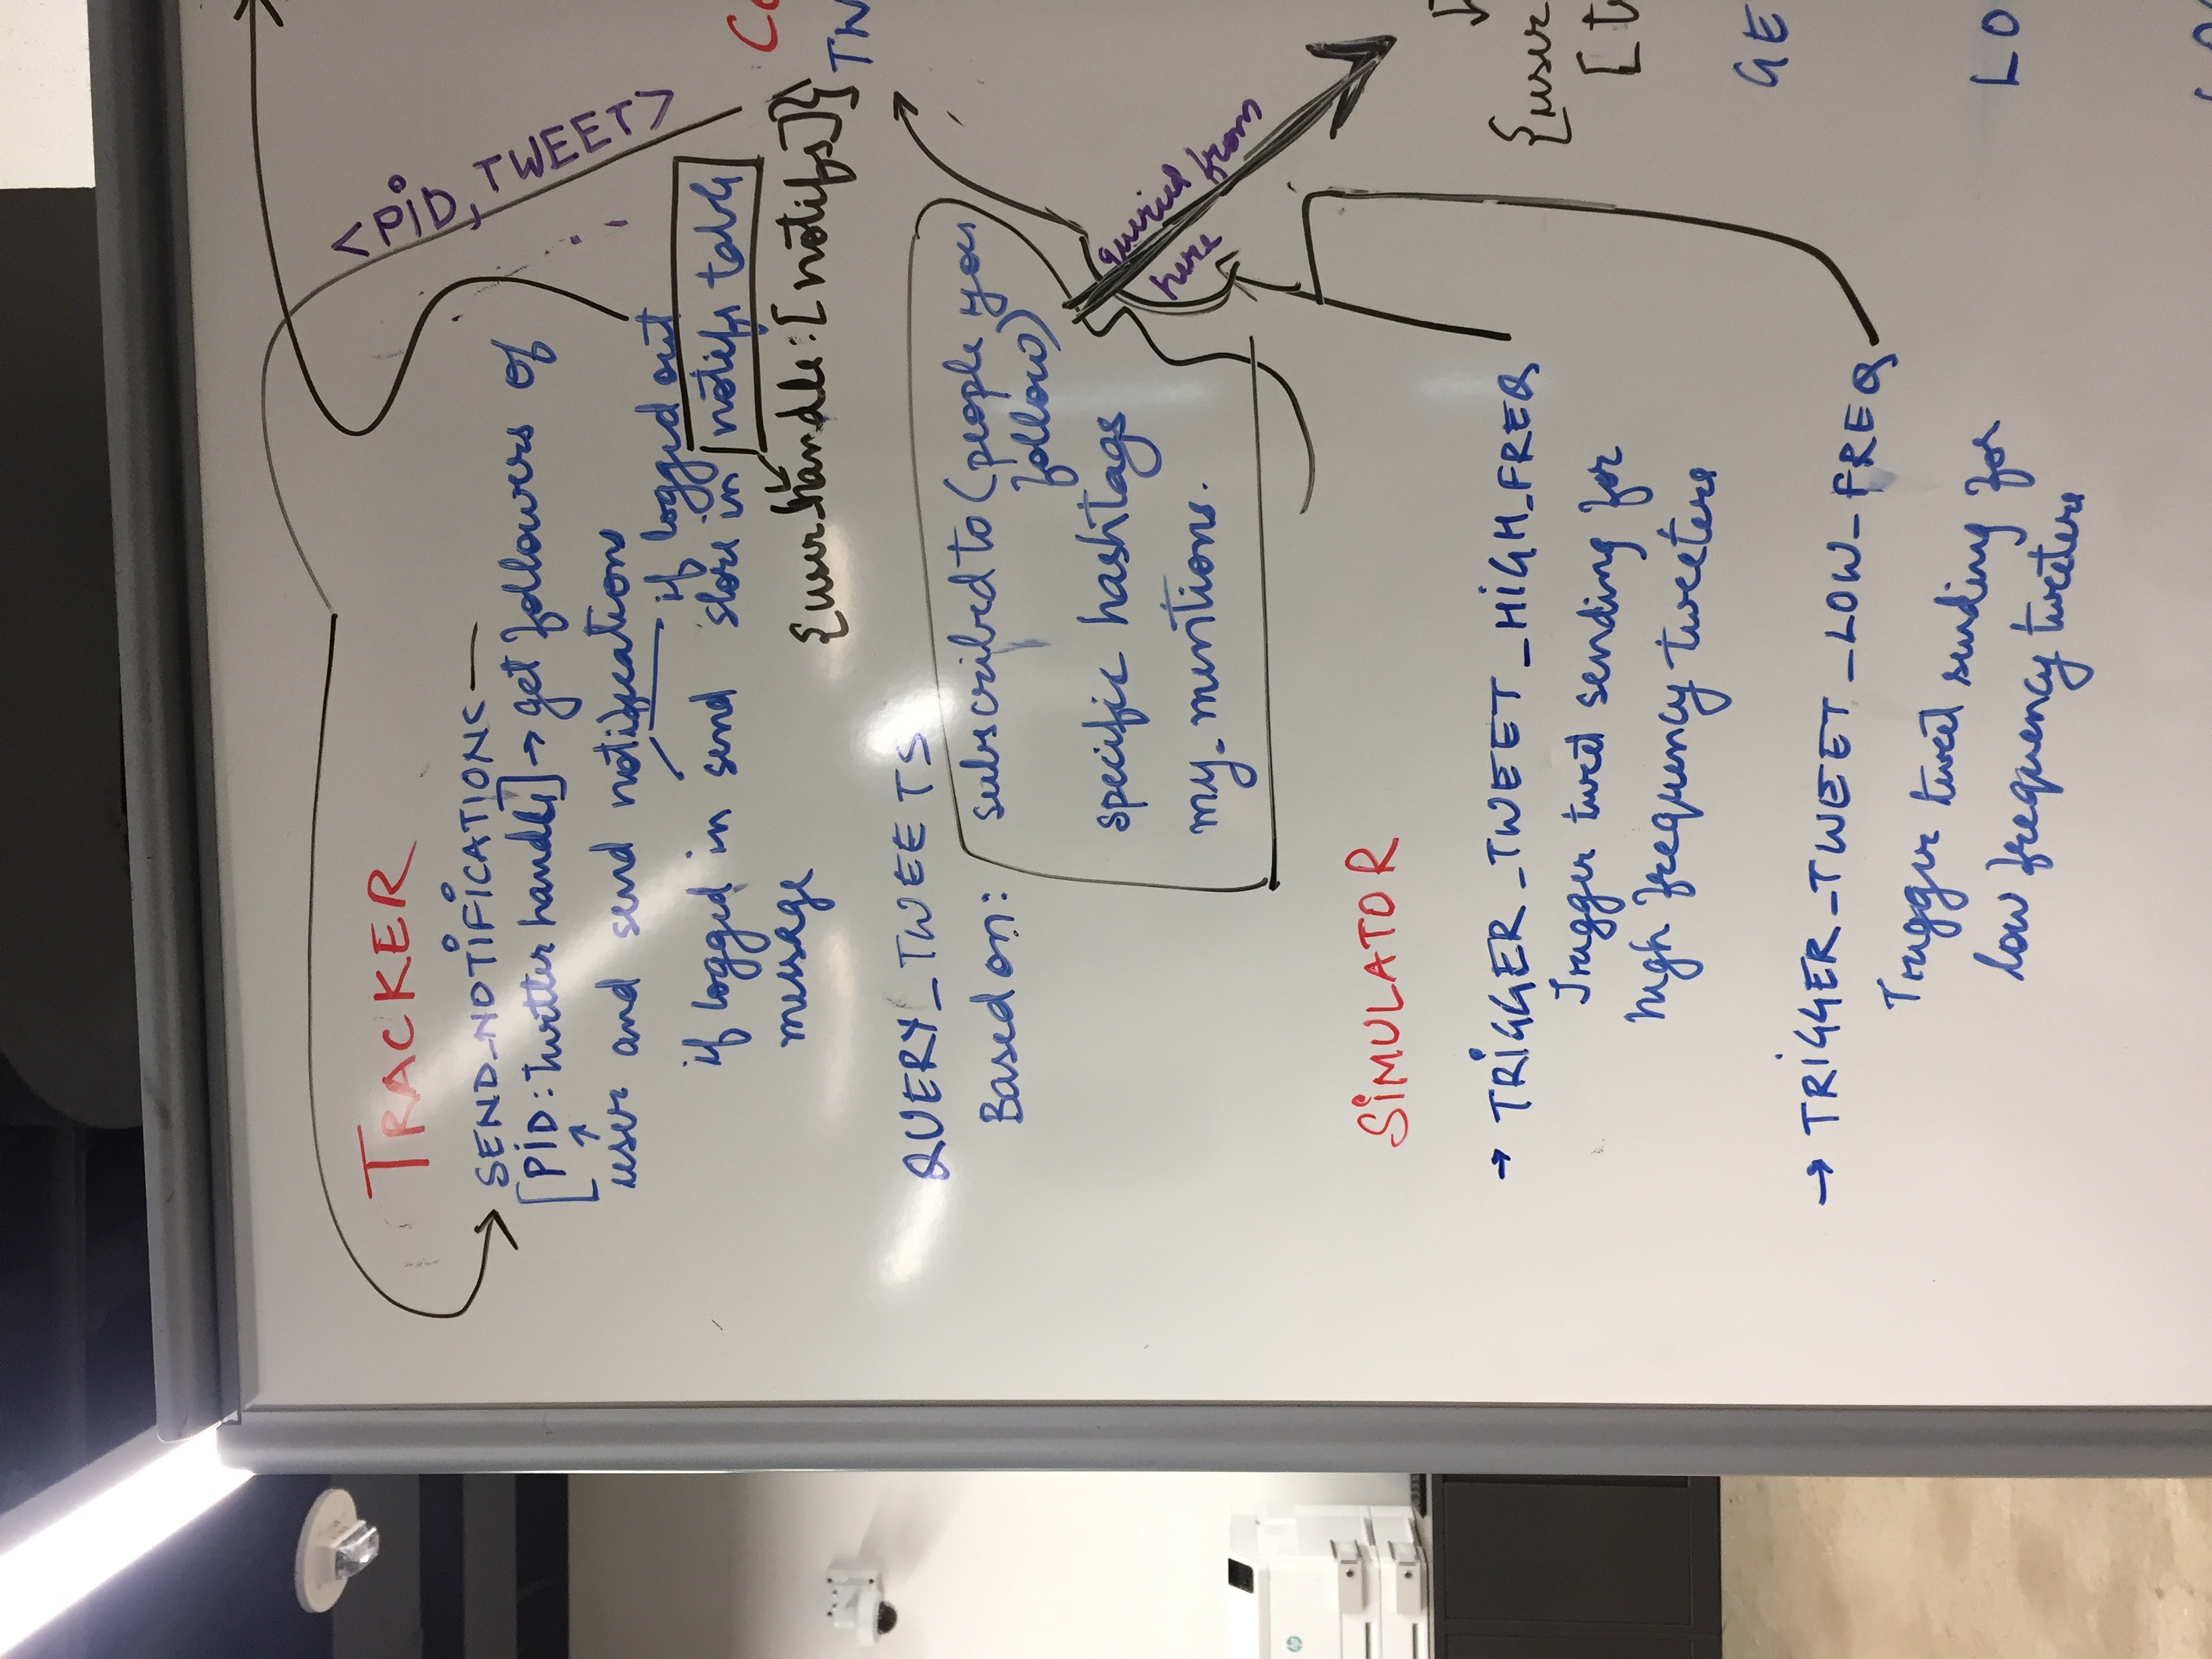 TRACKER
SEND_NOTIFICATIONS
[PID: twitter handle] → get followers of
user and send notifications
if logged out
if logged in send store in notifs table
message
{user_handle: [notifs]}
<PID, TWEET>
QUERY_TWEETS
Based on: subscribed to (people you
follow)
specific hashtags
my_mentions.
queried from
here
SIMULATOR
→ TRIGGER_TWEET_HIGH_FREQ
Trigger tweet sending for
high frequency tweeters
→ TRIGGER_TWEET_LOW_FREQ
Trigger tweet sending for
low frequency tweeters
TW
{user
[t
GE
LO
hp